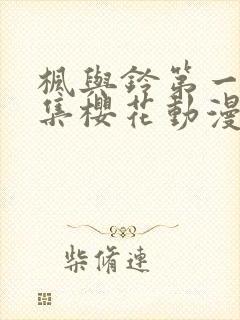 楓與鈴第一
集櫻花動漫
柴脩連